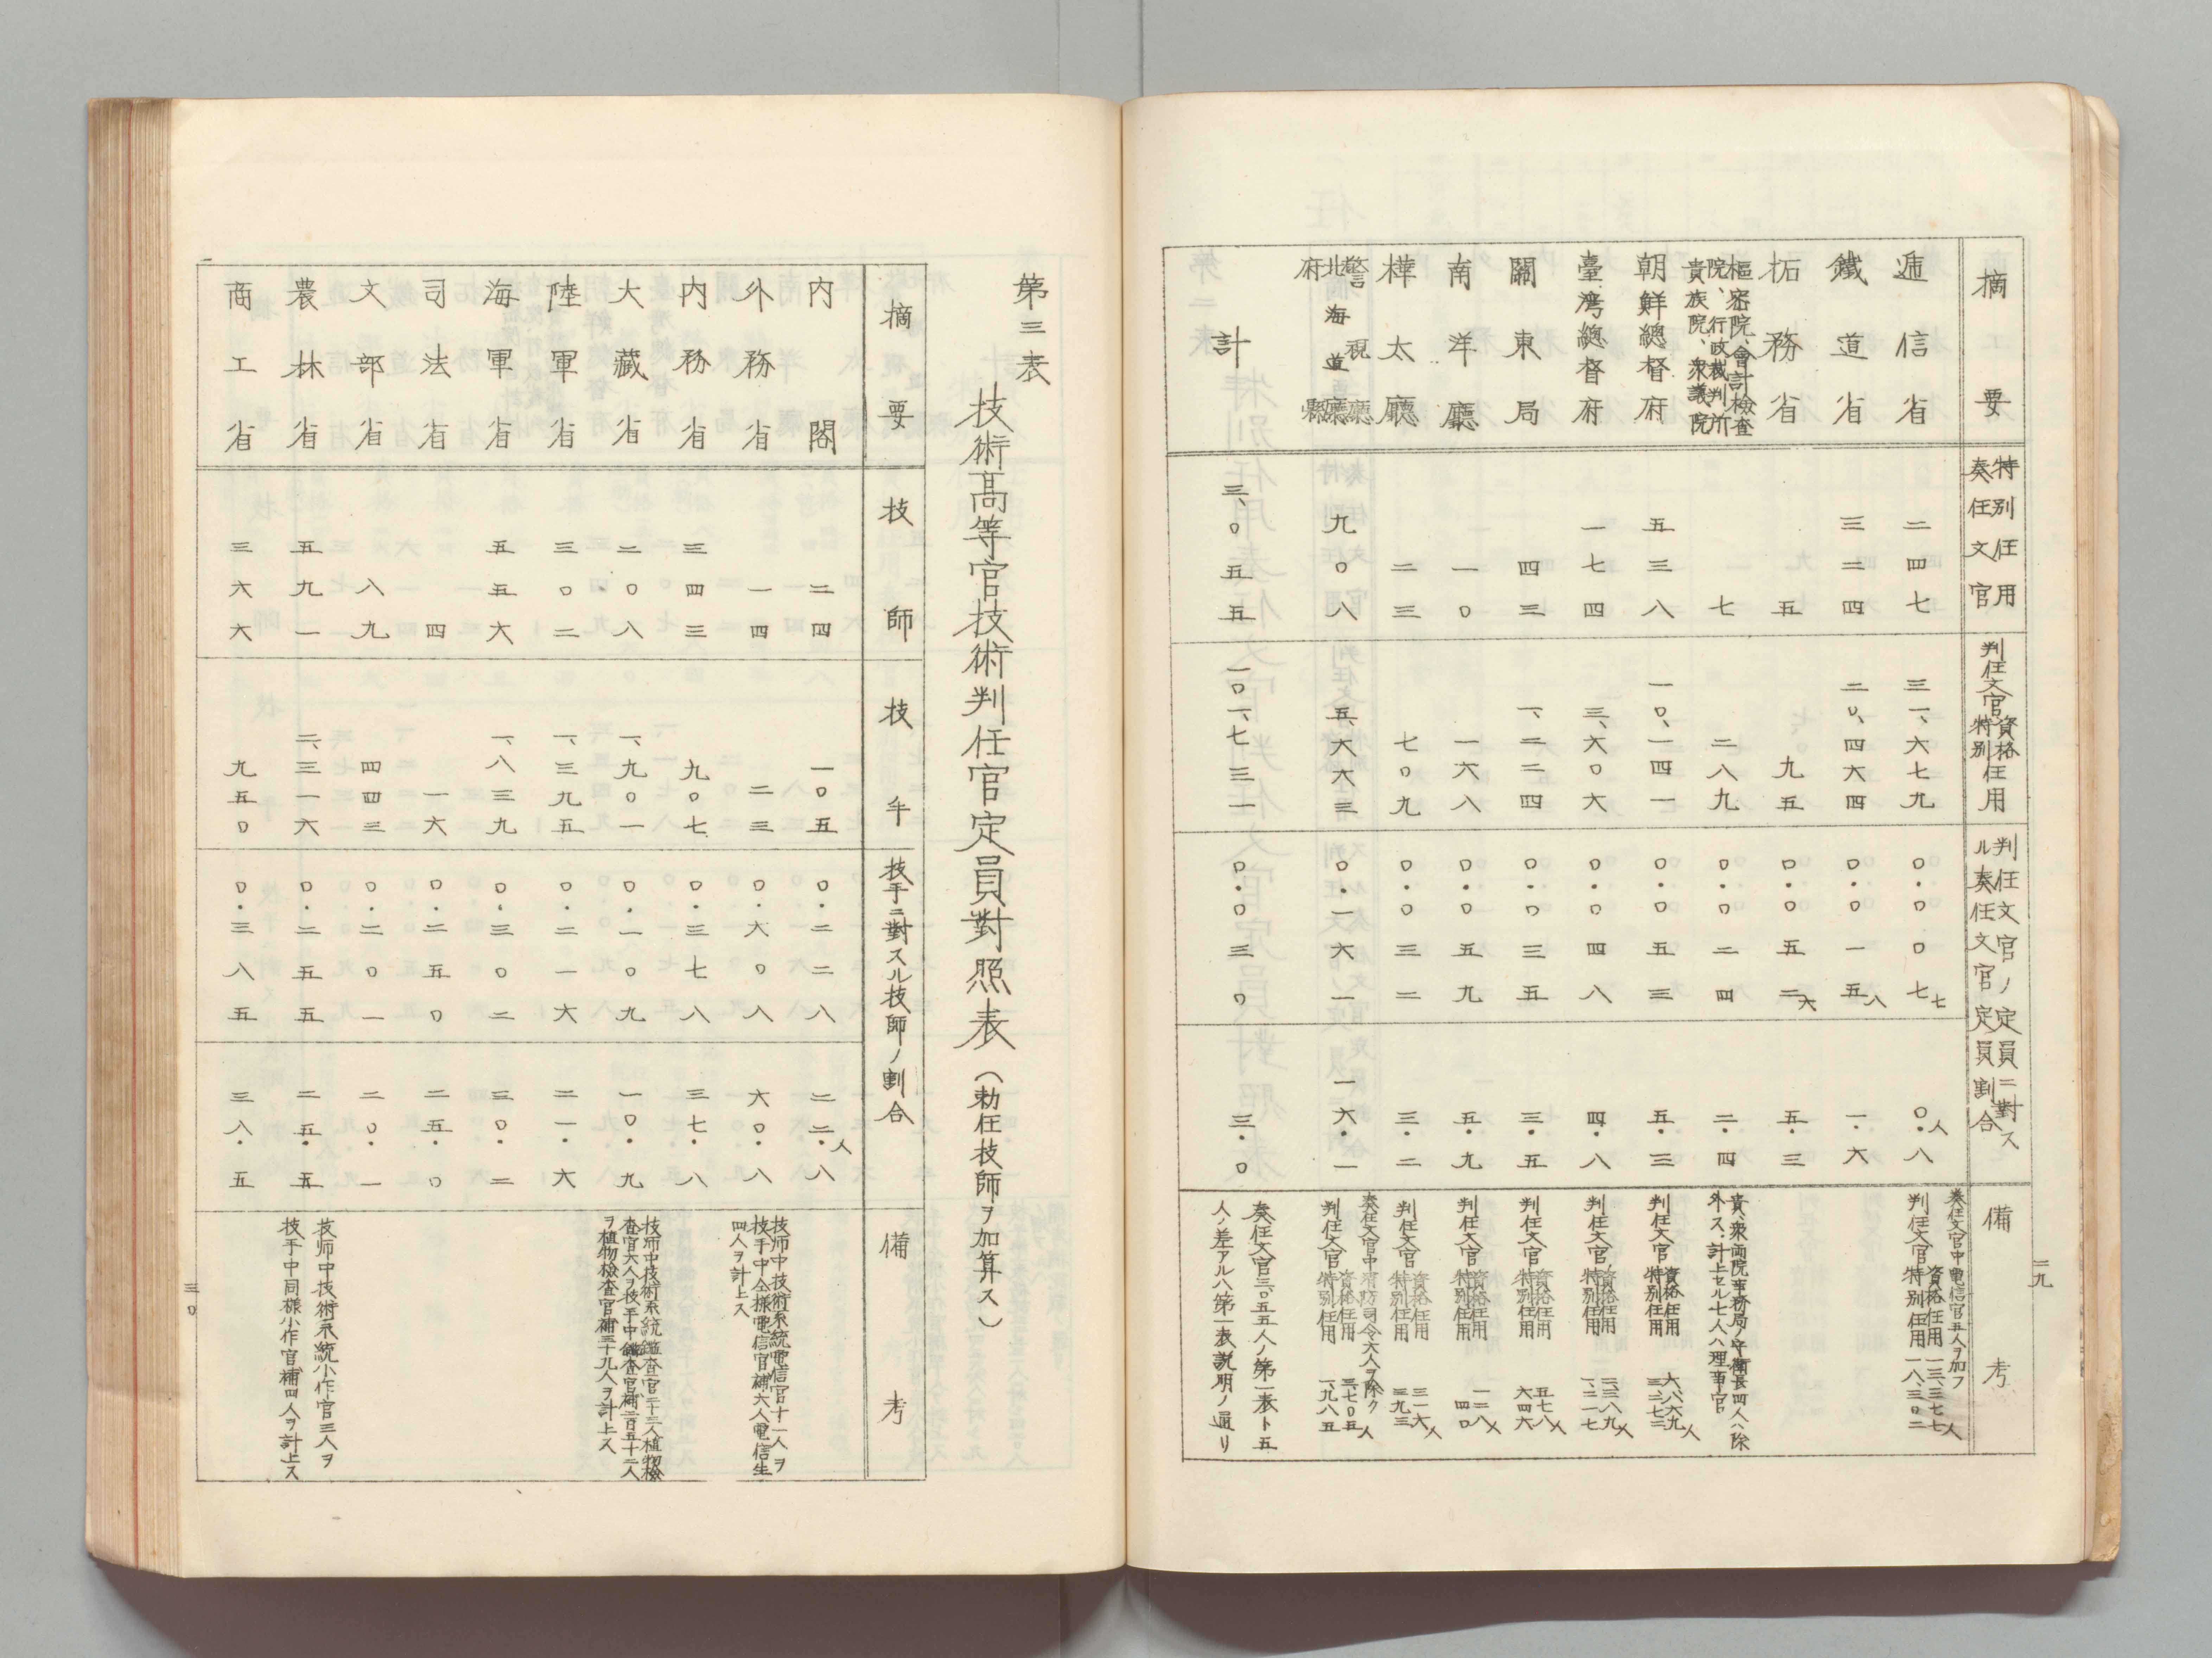 摘要
特別任用奏任文官
判任文官資格特別任用
判任文官ノ定員ニ對スル奏任文官定員割合
備考
遞信省
二四七
三一、六七九
〇・〇〇七七
〇・八人
奏任文官中電信官五人ヲ加フ
判任文官資格任用 一三、三七七人
特別任用 一八、三〇二
鐵道省
三二四
二〇、四六四
〇・〇一五八
一・六
拓務省
五
九五
〇・〇五二六
五・三
樞密院、會計檢查院、行政裁判所
貴族院、衆議院
七
二八九
〇・〇二四
二・四
貴、衆両院事務局ノ守衞長四人ハ除
外ス、計上セル七人ハ理事官
朝鮮總督府
五三八
一〇、一四一
〇・〇五三
五・三
判任文官資格任用 六、八六九人
特別任用 三、二七二
臺灣總督府
一七四
三、六〇六
〇・〇四八
四・八
判任文官資格任用 二、三八九人
特別任用 一、二一七
關東局
四三
一、二二四
〇・〇三五
三・五
判任文官資格任用 五七八人
特別任用 六四六
南洋廳
一〇
一六八
〇・〇五九
五・九
判任文官資格任用 一二八人
特別任用 四〇
樺太廳
二三
七〇九
〇・〇三二
三・二
判任文官資格任用 三一六人
特別任用 三九三
警視廳
北海道廳
府縣
九〇八
五、六六三
〇・一六一
一六・一
奏任文官中消防司令六人ヲ除ク
判任文官資格任用 三、七〇五人
特別任用 一、九八五
計
三、〇五五
一〇一、七三一
〇・〇三〇
三・〇
奏任文官三、〇五五人ノ第一表ト五
人ノ差アルハ第一表説明ノ通リ
二九
第三表
技術高等官技術判任官定員對照表(勅任技師ヲ加算ス)
摘要
技師
技手
技手ニ對スル技師ノ割合
備考
内閣
二四
一〇五
〇・二二八
二二・八人
外務省
一四
二三
〇・六〇八
六〇・八
技師中技術系統電信官十一人ヲ
技手中仝樣電信官補六人電信生
四人ヲ計上ス
内務省
三四三
九〇七
〇・三七八
三七・八
大藏省
二〇八
一、九〇一
〇・一〇九
一〇・九
技師中技術系統鑑査官二十三人植物檢
査官六人ヲ技手中鑑査官補二百五十二人
ヲ植物檢査官補三十九人ヲ計上ス
陸軍省
三〇二
一、三九五
〇・二一六
二一・六
海軍省
五五六
一、八三九
〇・三〇二
三〇・二
司法省
四
一六
〇・二五〇
二五・〇
文部省
八九
四四三
〇・二〇一
二〇・一
農林省
五九一
二、三一六
〇・二五五
二五・五
技师中技術系統小作官三人ヲ
技手中同樣小作官補四人ヲ計上ス
商工省
三六六
九五〇
〇・三八五
三八・五
三〇